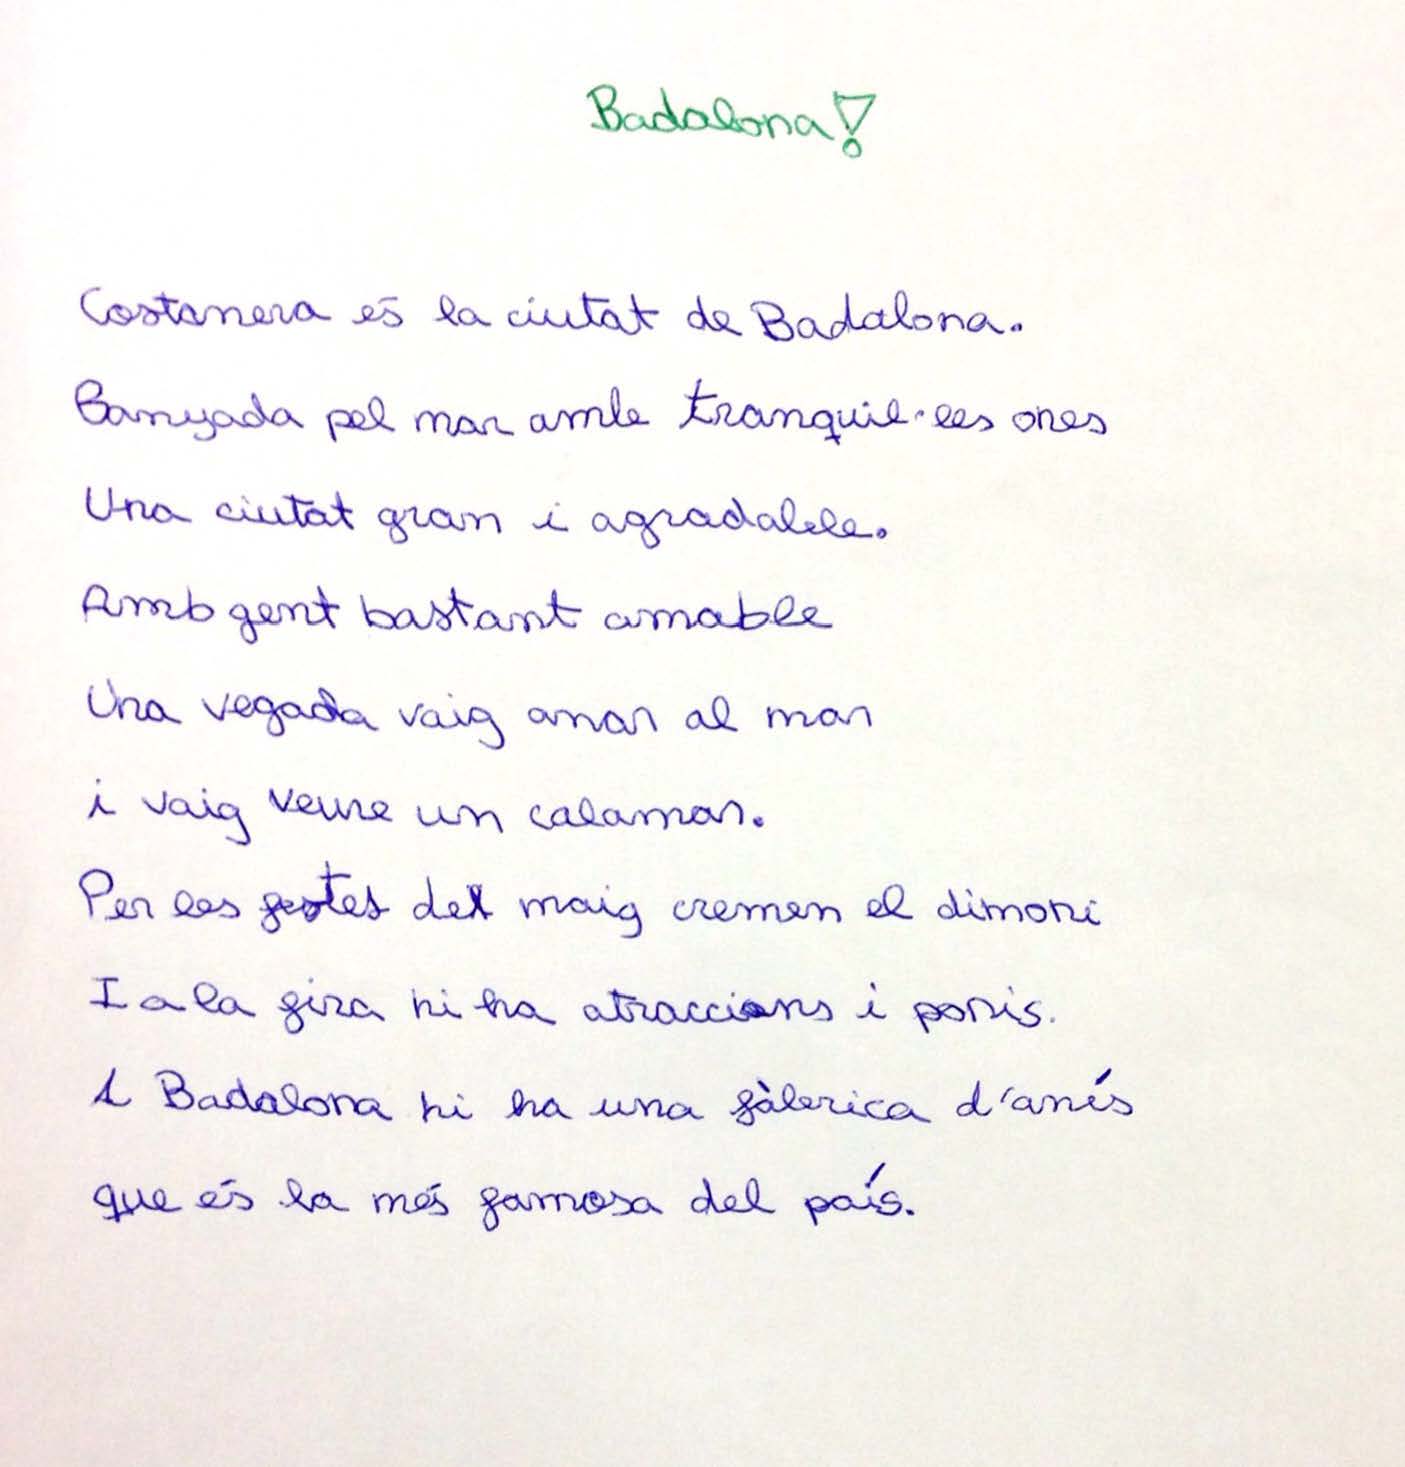 Badalona!
Costanera és la ciutat de Badalona.
Banyada pel mar amb tranquil·les ones
Una ciutat gran i agradable.
Amb gent bastant amable
Una vegada vaig anar al mar
i vaig veure un calamar.
Per les festes del maig cremen el dimoni
I a la fira hi ha atraccions i ponis.
A Badalona hi ha una fàbrica d'anís
que és la més famosa del país.